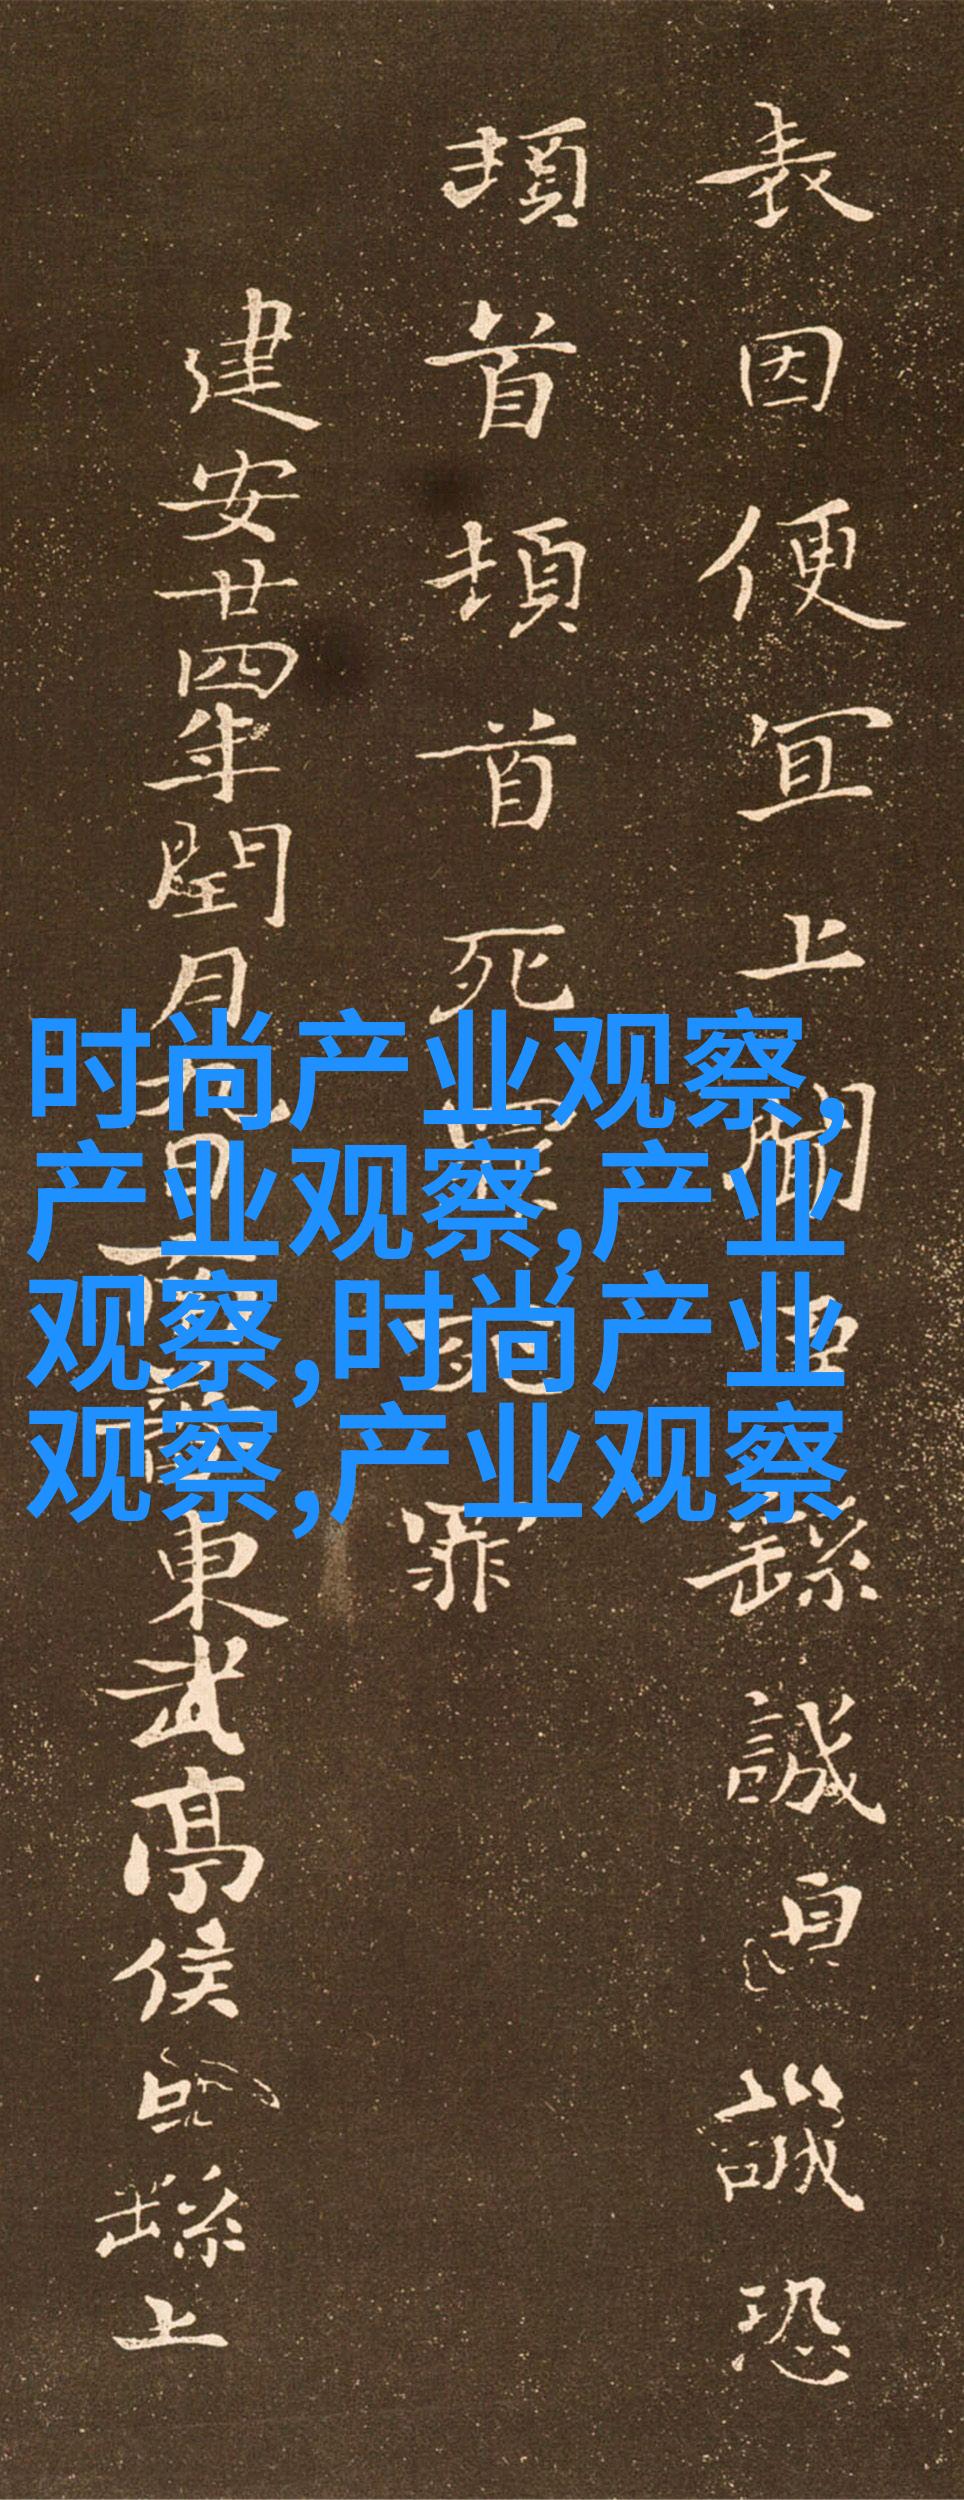 表因便宜上聞臣繇誠惶誠恐
頓首頓首死罪死罪
建安廿四年閏月九日南蕃東武亭侯臣繇上
时尚产业观察,
产业观察,产业
观察,时尚产业
观察,产业观察